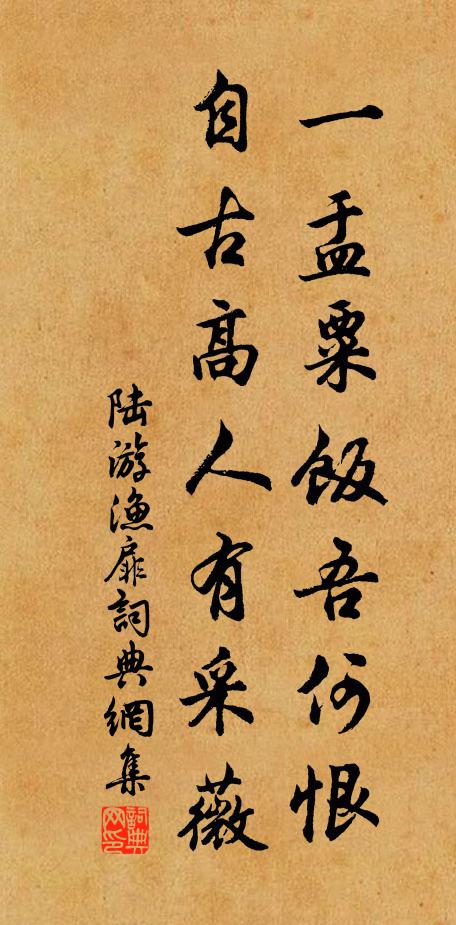 一盂粟飯吾何恨
自古高人有采薇
陸游漁扉詞典網集
詞典网印